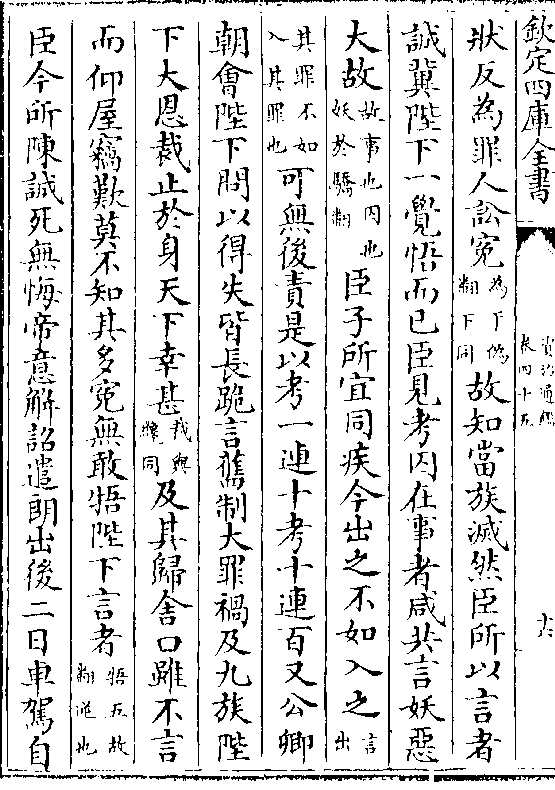 欽定四庫全書
資治通鑑
卷四十五
十六
狀反為罪人訟寃為于偽翻下同故知當族滅然臣所以言者
誠冀陛下一覺悟而已臣見考囚在事者咸共言妖惡
大故故事也囚也妖於驕翻臣子所宜同疾今出之不如入之言出
其罪不如入其罪也可無後責是以考一連十考十連百又公卿
朝會陛下問以得失皆長跪言舊制大罪禍及九族陛
下大恩裁止於身天下幸甚裁與纔同及其歸舍口雖不言
而仰屋竊歎莫不知其多寃無敢牾陛下言者牾五故翻逆也
臣今所陳誠死無悔帝意解詔遣朗出後二日車駕自